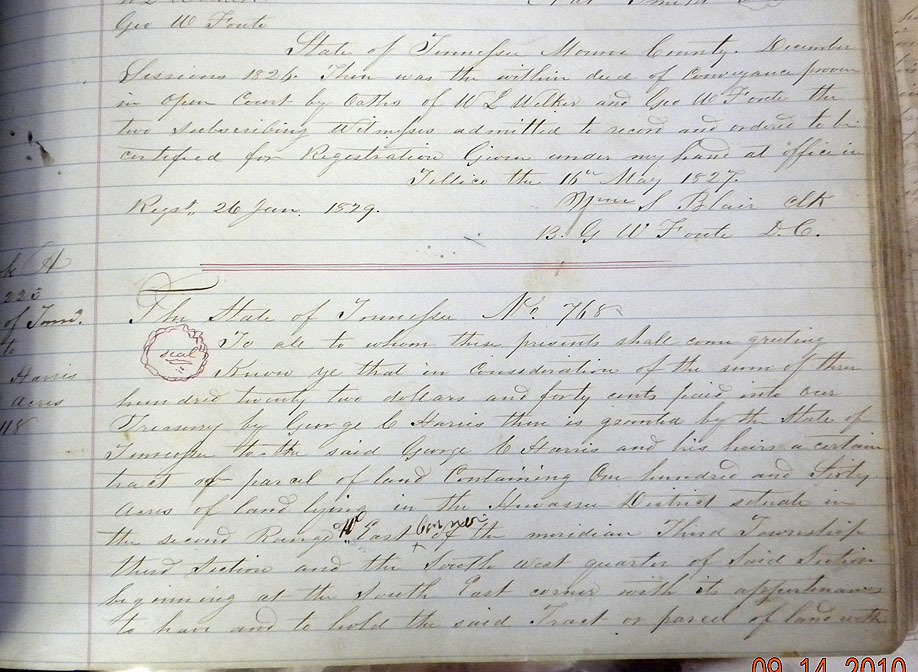 Geo W Foute
State of Tennessee Monroe County. December
Sessions 1826. Then was the within deed of conveyance proven
in Open Court by Oaths of W L Welker and Geo W Foute the
two subscribing Witnesses admitted to record and ordered to be
certified for Registration Given under my hand at office in
Tellico the 16th May 1827.
Regst. 26 Jan. 1829.
Wm S Blair Clk
B. G W Foute D.C.
223
of Tenn.
to
Harris
Acres
118
The State of Tennessee No. 768
seal
To all to whom these presents shall come greeting
Know ye that in consideration of the sum of three
hundred twenty two dollars and forty cents paid into our
Treasury by George C Harris there is granted by the State of
Tennessee to the said George C Harris and his heirs a certain
tract of parcel of land Containing One hundred and Sixty
Acres of land lying in the Hiwassee District situate in
the second Range East corner of the meridian Third Township
third Section and the South West quarter of Said Section
beginning at the South East corner with it appurtenances
to have and to hold the said Tract or parcel of land with
09.14.2010